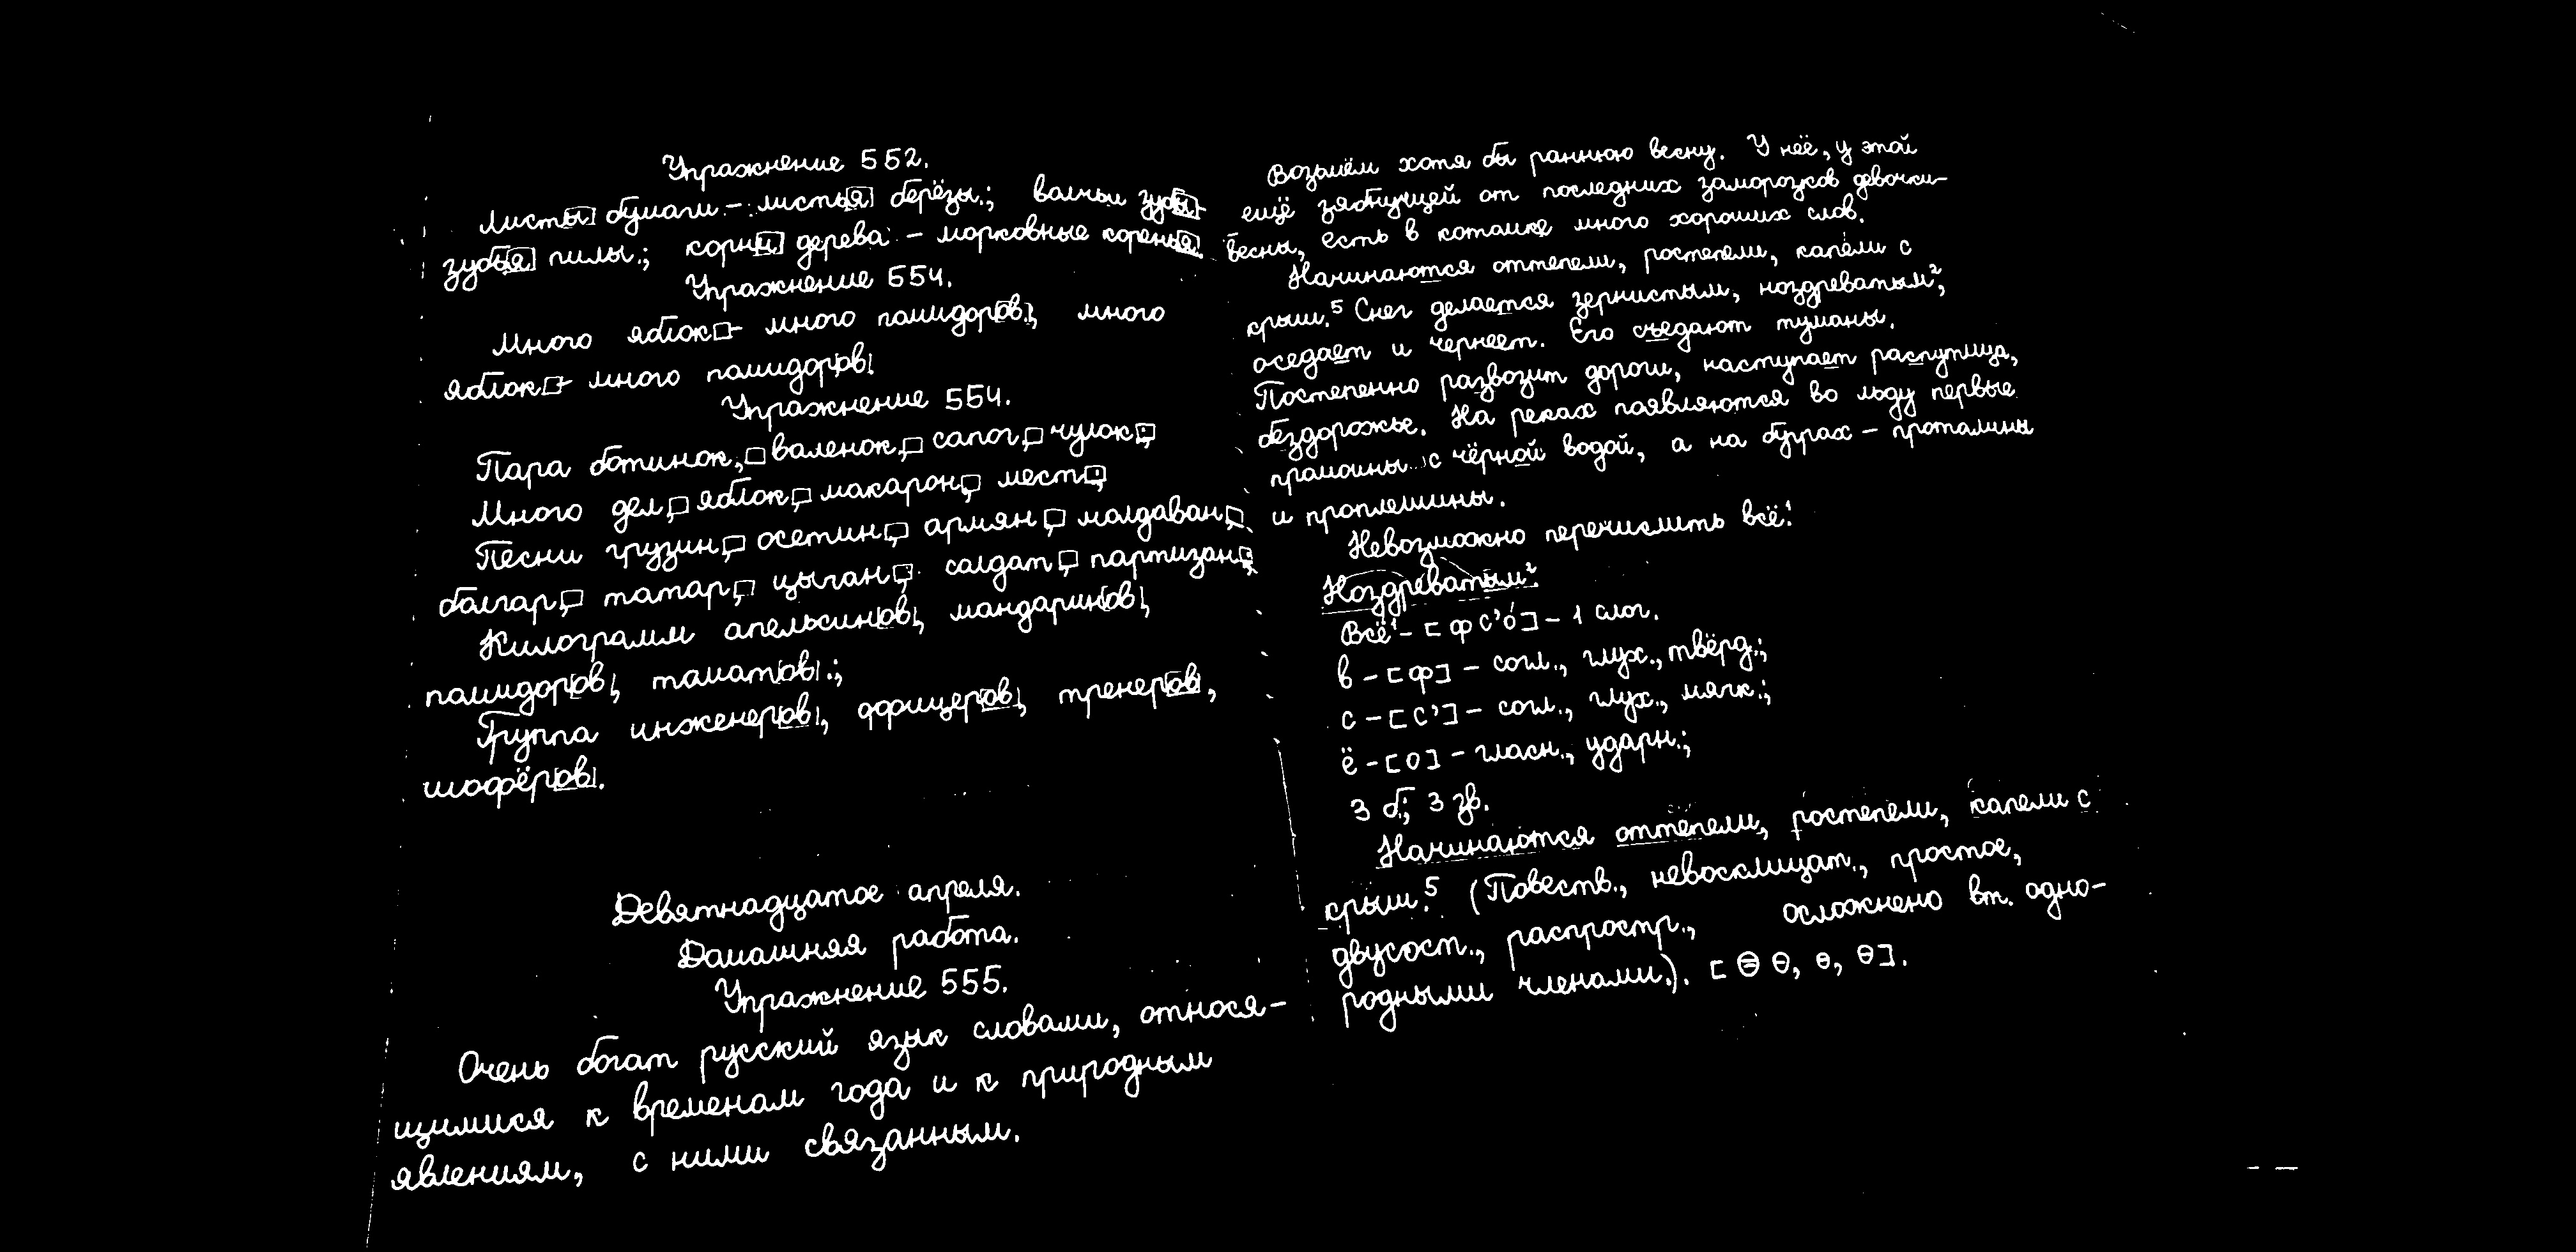 Упражнение 552.
Листы бумаги - листья берёзы.; волчьи зубы-
зубья пилы.; корни дерева - морковные коренья.
Упражнение 554.
Много яблок - много помидоров, много
яблок - много помидоров.
Упражнение 554.
Пара ботинок, валенок, сапог, чулок;
Много дел, яблок, макарон, мест;
Песни грузин, осетин, армян, молдаван,
болгар, татар, цыган, солдат, партизан;
Килограмм апельсинов, мандаринов,
помидоров, томатов.;
Группа инженеров, офицеров, тренеров,
шофёров.
Девятнадцатое апреля.
Домашняя работа.
Упражнение 555.
Очень богат русский язык словами, относя-
щимися к временам года и к природным
явлениям, с ними связанным.
Возьмём хотя бы раннюю весну. У неё, у этой
ещё зябнущей от последних заморозков девочки-
весны, есть в котомке много хороших слов.
Начинаются оттепели, ростепели, капели с
крыш.⁵ Снег делается зернистым, ноздреватым²,
оседает и чернеет. Его съедают туманы.
Постепенно развозит дороги, наступает распутица,
бездорожье. На реках появляются во льду первые
промоины с чёрной водой, а на буграх - проталины
и проплешины.
Невозможно перечислить всё!¹
Ноздреватым²
Всё¹ - [фс'о́] - 1 слог.
в - [ф] - согл., глух., твёрд.;
с - [с'] - согл., глух., мягк.;
ё - [о] - гласн., ударн.;
3 б.; 3 зв.
Начинаются оттепели, ростепели, капели с
крыш.⁵ (Повеств., невосклицат., простое,
двусост., распростр., осложнено вт. одно-
родными членами.).